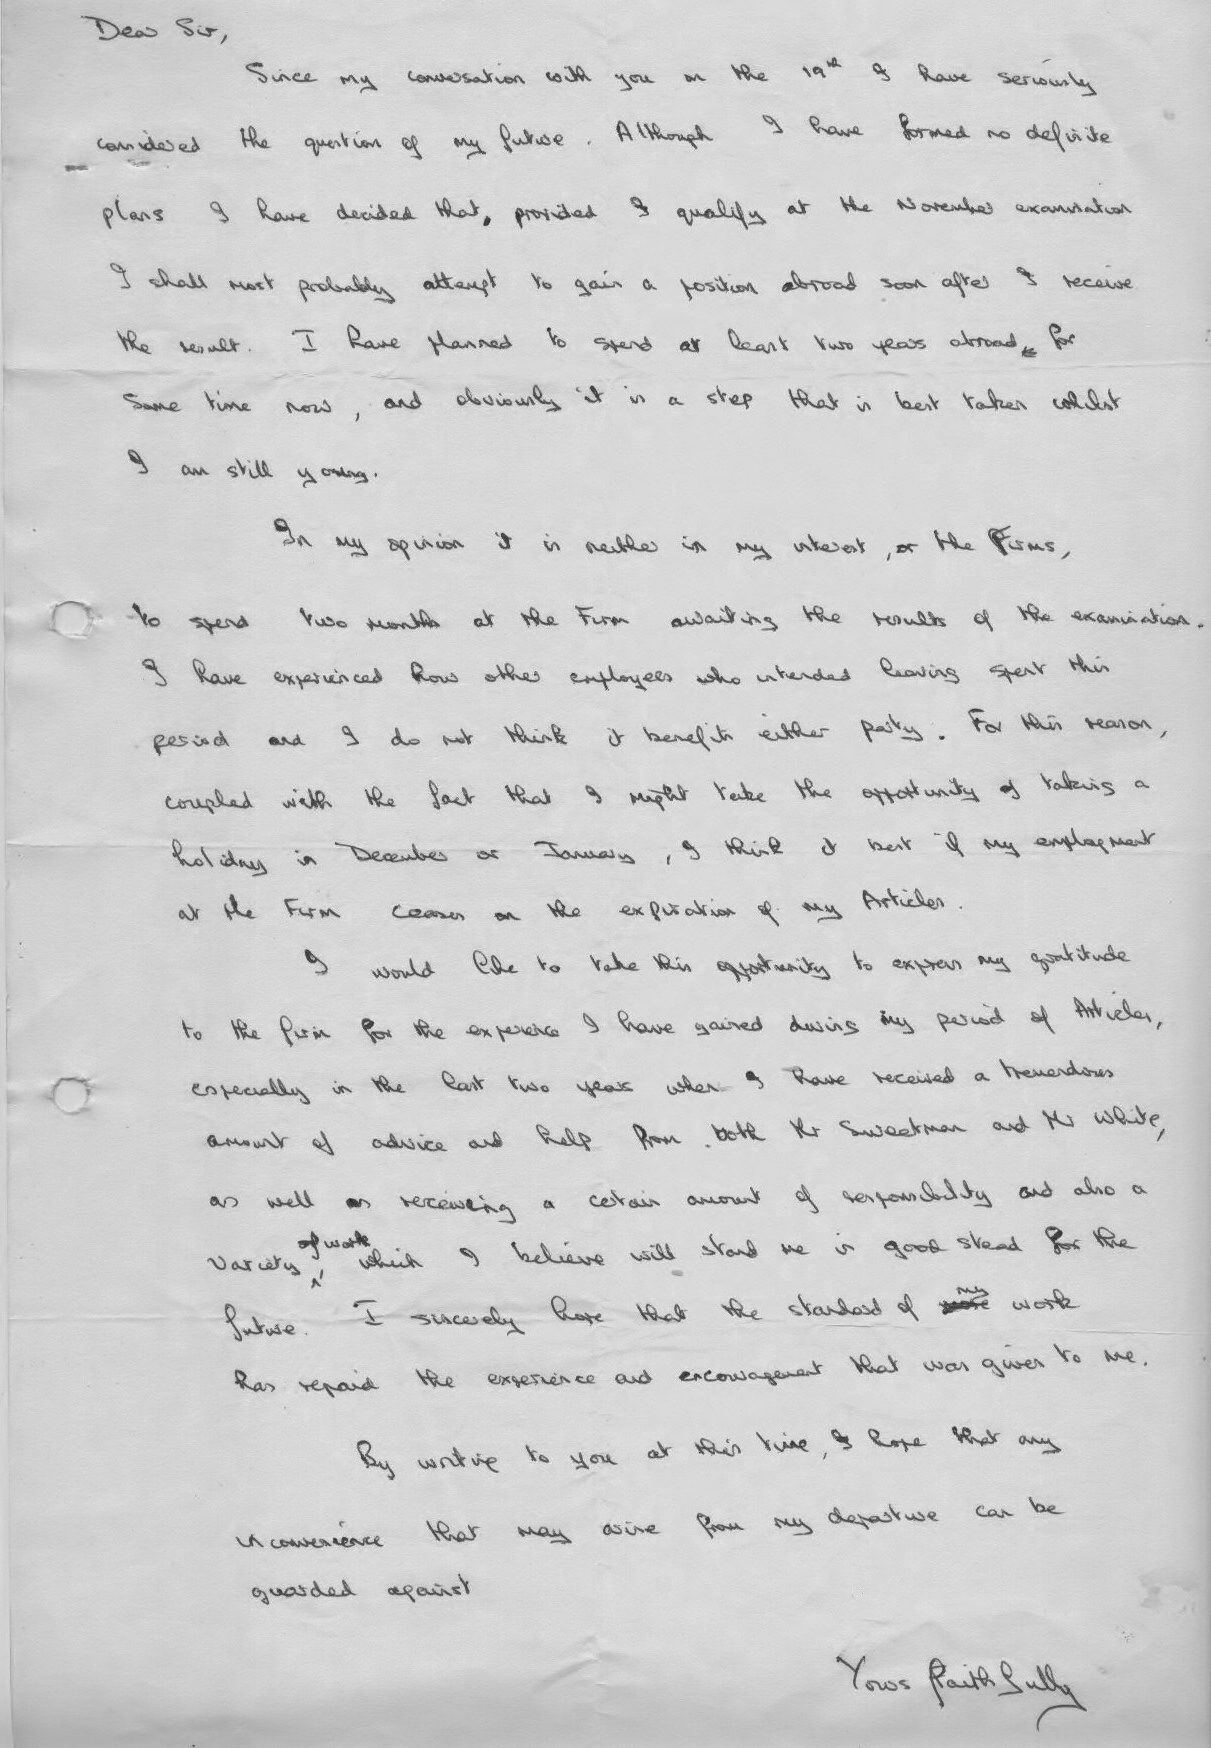 Dear Sir,
Since my conversation with you on the 19th I have seriously
considered the question of my future. Although I have formed no definite
plans I have decided that, provided I qualify at the November examination
I shall most probably attempt to gain a position abroad soon after I receive
the result. I have planned to spend at least two years abroad, for
some time now, and obviously it is a step that is best taken whilst
I am still young.
In my opinion it is neither in my interest, or the Firms,
to spend two months at the Firm awaiting the results of the examination.
I have experienced how other employees who intended leaving spent this
period and I do not think it benefits either party. For this reason,
coupled with the fact that I might take the opportunity of taking a
holiday in December or January, I think it best if my employment
at the Firm ceases on the expiration of my Articles.
I would like to take this opportunity to express my gratitude
to the firm for the experience I have gained during my period of Articles,
especially in the last two years when I have received a tremendous
amount of advice and help from both Mr Sweetman and Mr White,
as well as receiving a certain amount of responsibility and also a
variety of work which I believe will stand me in good stead for the
future. I sincerely hope that the standard of my work
has repaid the experience and encouragement that was given to me.
By writing to you at this time, I hope that any
inconvenience that may arise from my departure can be
guarded against
Yours faithfully